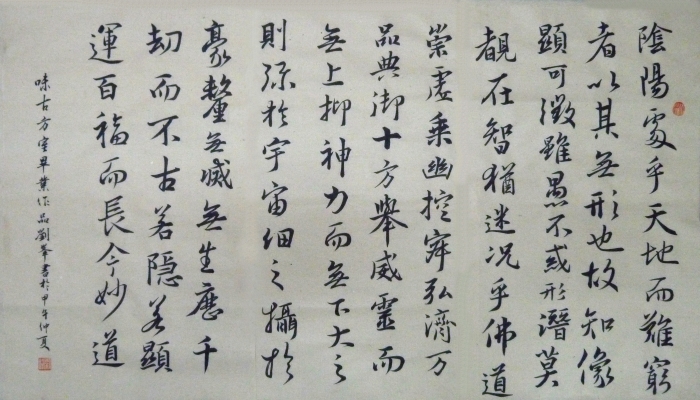 陰陽處乎天地而難窮
者以其無形也故知像
顯可徵雖愚不惑形潛莫
覩在智猶迷況乎佛道
崇虛乘幽控寂弘濟万
品典御十方舉威靈而
無上抑神力而無下大之
則弥於宇宙細之攝於
豪釐無滅無生歷千
劫而不古若隱若顯
運百福而長今妙道
味古方室畢業作品劉峯書於甲午仲夏